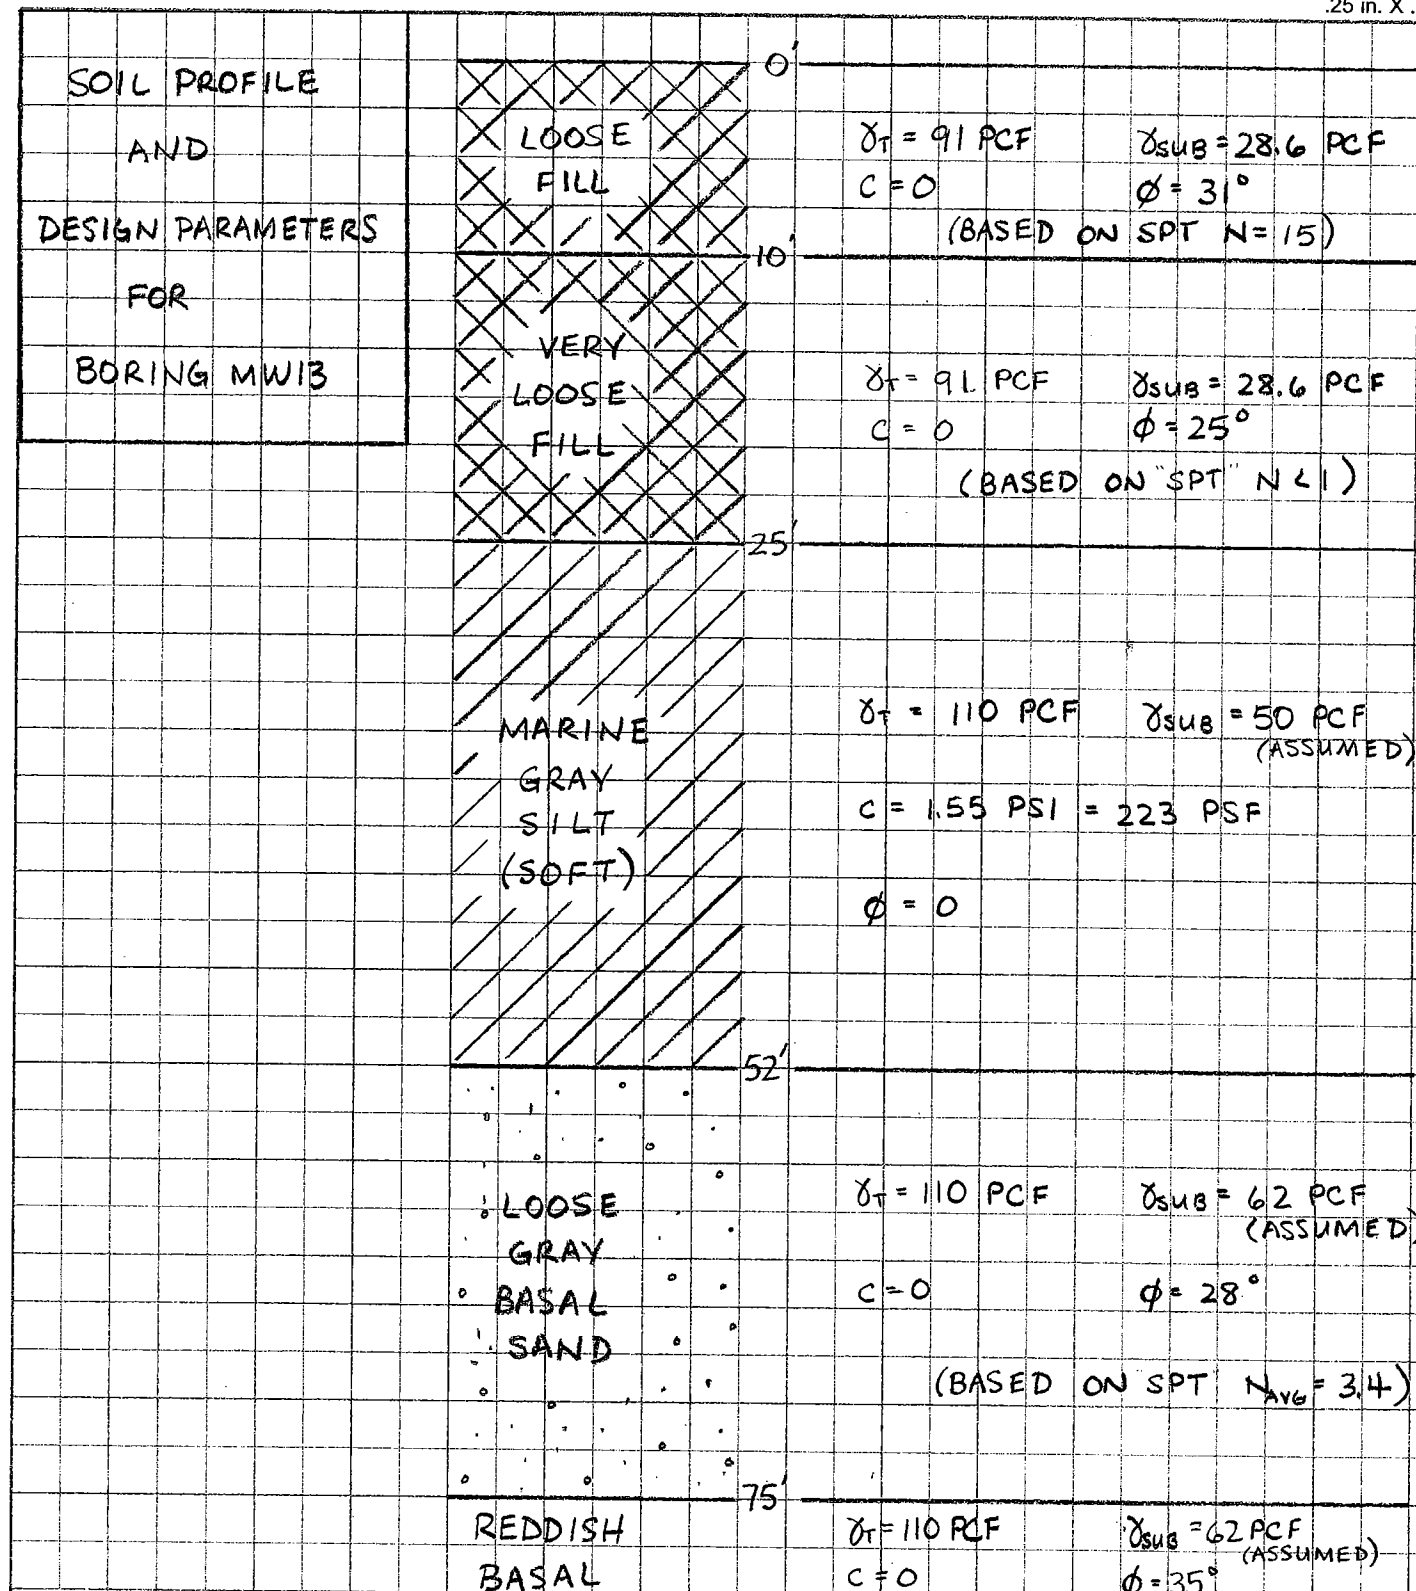 .25 in. X .
SOIL PROFILE
AND
DESIGN PARAMETERS
FOR
BORING MW13
0'
LOOSE
FILL
γT = 91 PCF γSUB = 28.6 PCF
C = 0 φ = 31°
(BASED ON SPT N=15)
10'
VERY
LOOSE
FILL
γT = 91 PCF γSUB = 28.6 PCF
C = 0 φ = 25°
(BASED ON "SPT" N<1)
25'
MARINE
GRAY
SILT
(SOFT)
γT = 110 PCF γSUB = 50 PCF
(ASSUMED)
C = 1.55 PSI = 223 PSF
φ = 0
52'
LOOSE
GRAY
BASAL
SAND
γT = 110 PCF γSUB = 62 PCF
(ASSUMED)
C=0 φ = 28°
(BASED ON SPT NAVG = 3.4)
75'
REDDISH
BASAL
γT = 110 PCF γSUB = 62 PCF
(ASSUMED)
C = 0 φ = 35°